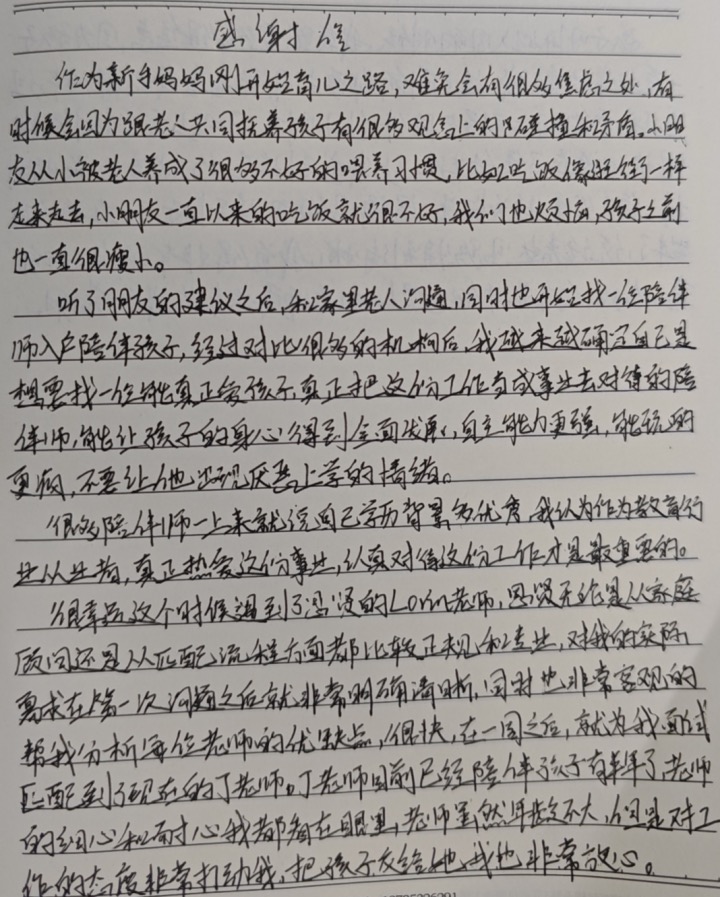 感谢信
作为新手妈妈刚开始育儿之路，难免会有很多焦虑之处，有
时候会因为跟老人共同抚养孩子有很多观念上的碰撞和矛盾。小朋
友从小被老人养成了很多不好的喂养习惯，比如吃饭像游行一样
走来走去，小朋友一直以来的吃饭就很不好，我们也烦恼，孩子之前
也一直很瘦小。
听了朋友的建议之后，和家里老人沟通，同时也开始找一位陪伴
师入户陪伴孩子，经过对比很多的机构后，我越来越确定自己是
想要找一位能真正爱孩子，真正把这份工作当成事业去对待的陪
伴师，能让孩子的身心得到全面发展，自主能力更强，能玩的
更疯，不要让他出现厌恶上学的情绪。
很多陪伴师一上来就说自己学历背景多优秀，我认为作为教育行
业从业者，真正热爱这份事业，认真对待这份工作才是最重要的。
很幸运这个时候遇到了思浸的Lorin老师，思浸无论是从家庭
顾问还是从匹配流程方面都比较正规和专业，对我的实际
需求在第一次沟通之后就非常明确清晰，同时也非常客观的
帮我分析每位老师的优缺点，很快，在一周之后，就为我面试
匹配到了现在的丁老师。丁老师目前已经陪伴孩子有半年了，老师
的细心和耐心我都看在眼里，老师虽然年龄不大，但是对工
作的态度非常打动我，把孩子交给她，我也非常放心。